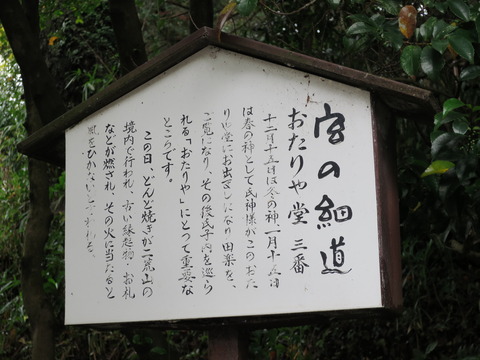 宮の細道
おたりや堂 三番
十二月十五日は冬の神一月十五日
は春の神として氏神様がこのおた
りや堂にお出ましになり 田楽を、
ご覧になり、その後氏子内を巡ら
れる「おたりや」にとって重要な
ところです。
この日、どんど焼きが二荒山の
境内で行われ、古い縁起物・お札
などが燃され、その火に当たると
風をひかないと